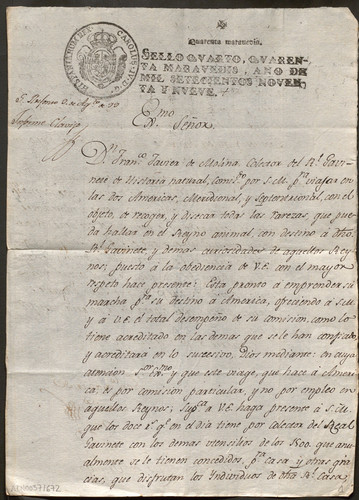 Quarenta maravedis.
CAROLUS IV D G
HISPANIAR REX
SELLO QUARTO, QUAREN-
TA MARAVEDIS, AÑO DE
MIL SETECIENTOS NOVEN-
TA Y NUEVE.
Informe Clavijo
Exmo
Señor.
Dn. Franco. Javier de Molina Colector del Rl. Gavi-
nete de Historia natural, Comdo. por S. M. pa. viajar en
las dos Americas, Meridional, y Septentrional, con el
objeto, de recoger, y disecar todas las rarezas, que pue-
da hallar en el Reyno animal, con destino á dho.
Rl. Gavinete, y demas curiosidades de aquellos Rey-
nos; puesto á la obediencia de V.E. con el mayor
respeto hace presente: Esta pronto á emprender su
marcha pa. su destino á America, ofreciendo á S.M.
y á V.E. el total desempeño de su comision, como lo
tiene acreditado en las demas que se le han confiado,
y acreditará en lo sucesivo, Dios mediante: en cuya
atencion Sor. Exmo. y que este viage, que hace á Ameri-
ca, es por comision particular, y no por empleo en
aquellos Reynos; Supca. á V.E. haga presente á S.M.
que los doce rs. qe. en el dia tiene por Colector del Real
Gavinete con los demas utensilios de los 800. que anual-
mente se le tienen concedidos, pa. casa, y otras gra-
cias, que disfrutan los Individuos de dha. Rl. Casa,